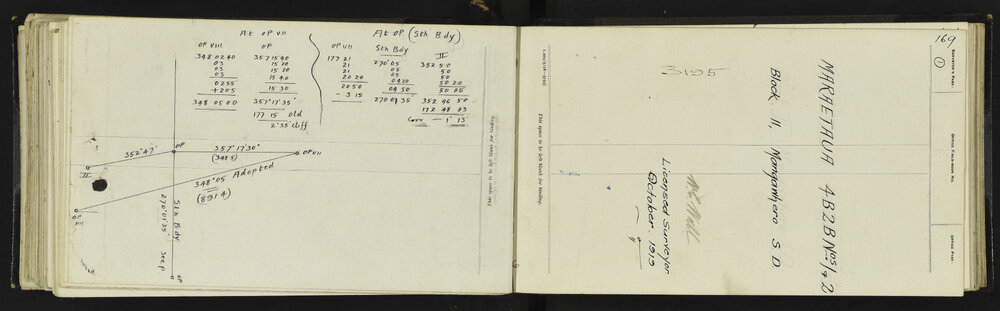 At OP VII
OP VIII OP
348 02 40 357 15 40
03 15 20
03 15 20
03 15 40
02 55 15 30
+ 2 05
348 05 00 357° 17' 35"
177 15 old
2' 35" diff
At OP (Sth Bdy)
OP VII Sth Bdy II
177 21 270° 05 352 50
21 05 50
21 05 50
20 20 04 20 50 20
20 50 04 50 50 05
- 3 15
270 01 35 352 46 50
172 48 03
Corr - 1' 13"
352° 47'
OP
357° 17' 30"
(348·5)
OP VII
II
348° 05 Adopted
(891·4)
OP VIII
Sth Bdy
270° 01' 35"
See p
OP
This space to be left blank for binding.
169
SURVEYOR'S PAGE.
①
OFFICE FIELD-BOOK NO.
OFFICE PAGE.
MARAETAUA 4B2B Nos 1 & 2
Block 11, Mangaotaro S.D
3195
This space to be left blank for binding.
Licensed Surveyor
October. 1919